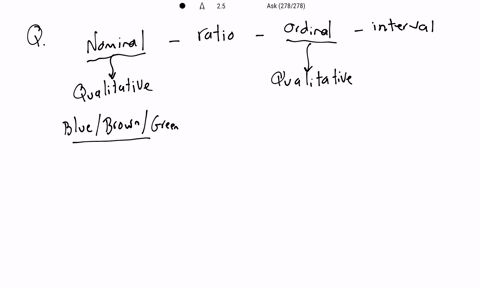 2.5 Ask (278/278)
Q. Nominal - ratio - ordinal - interval
Qualitative Qualitative
Blue/Brown/Green